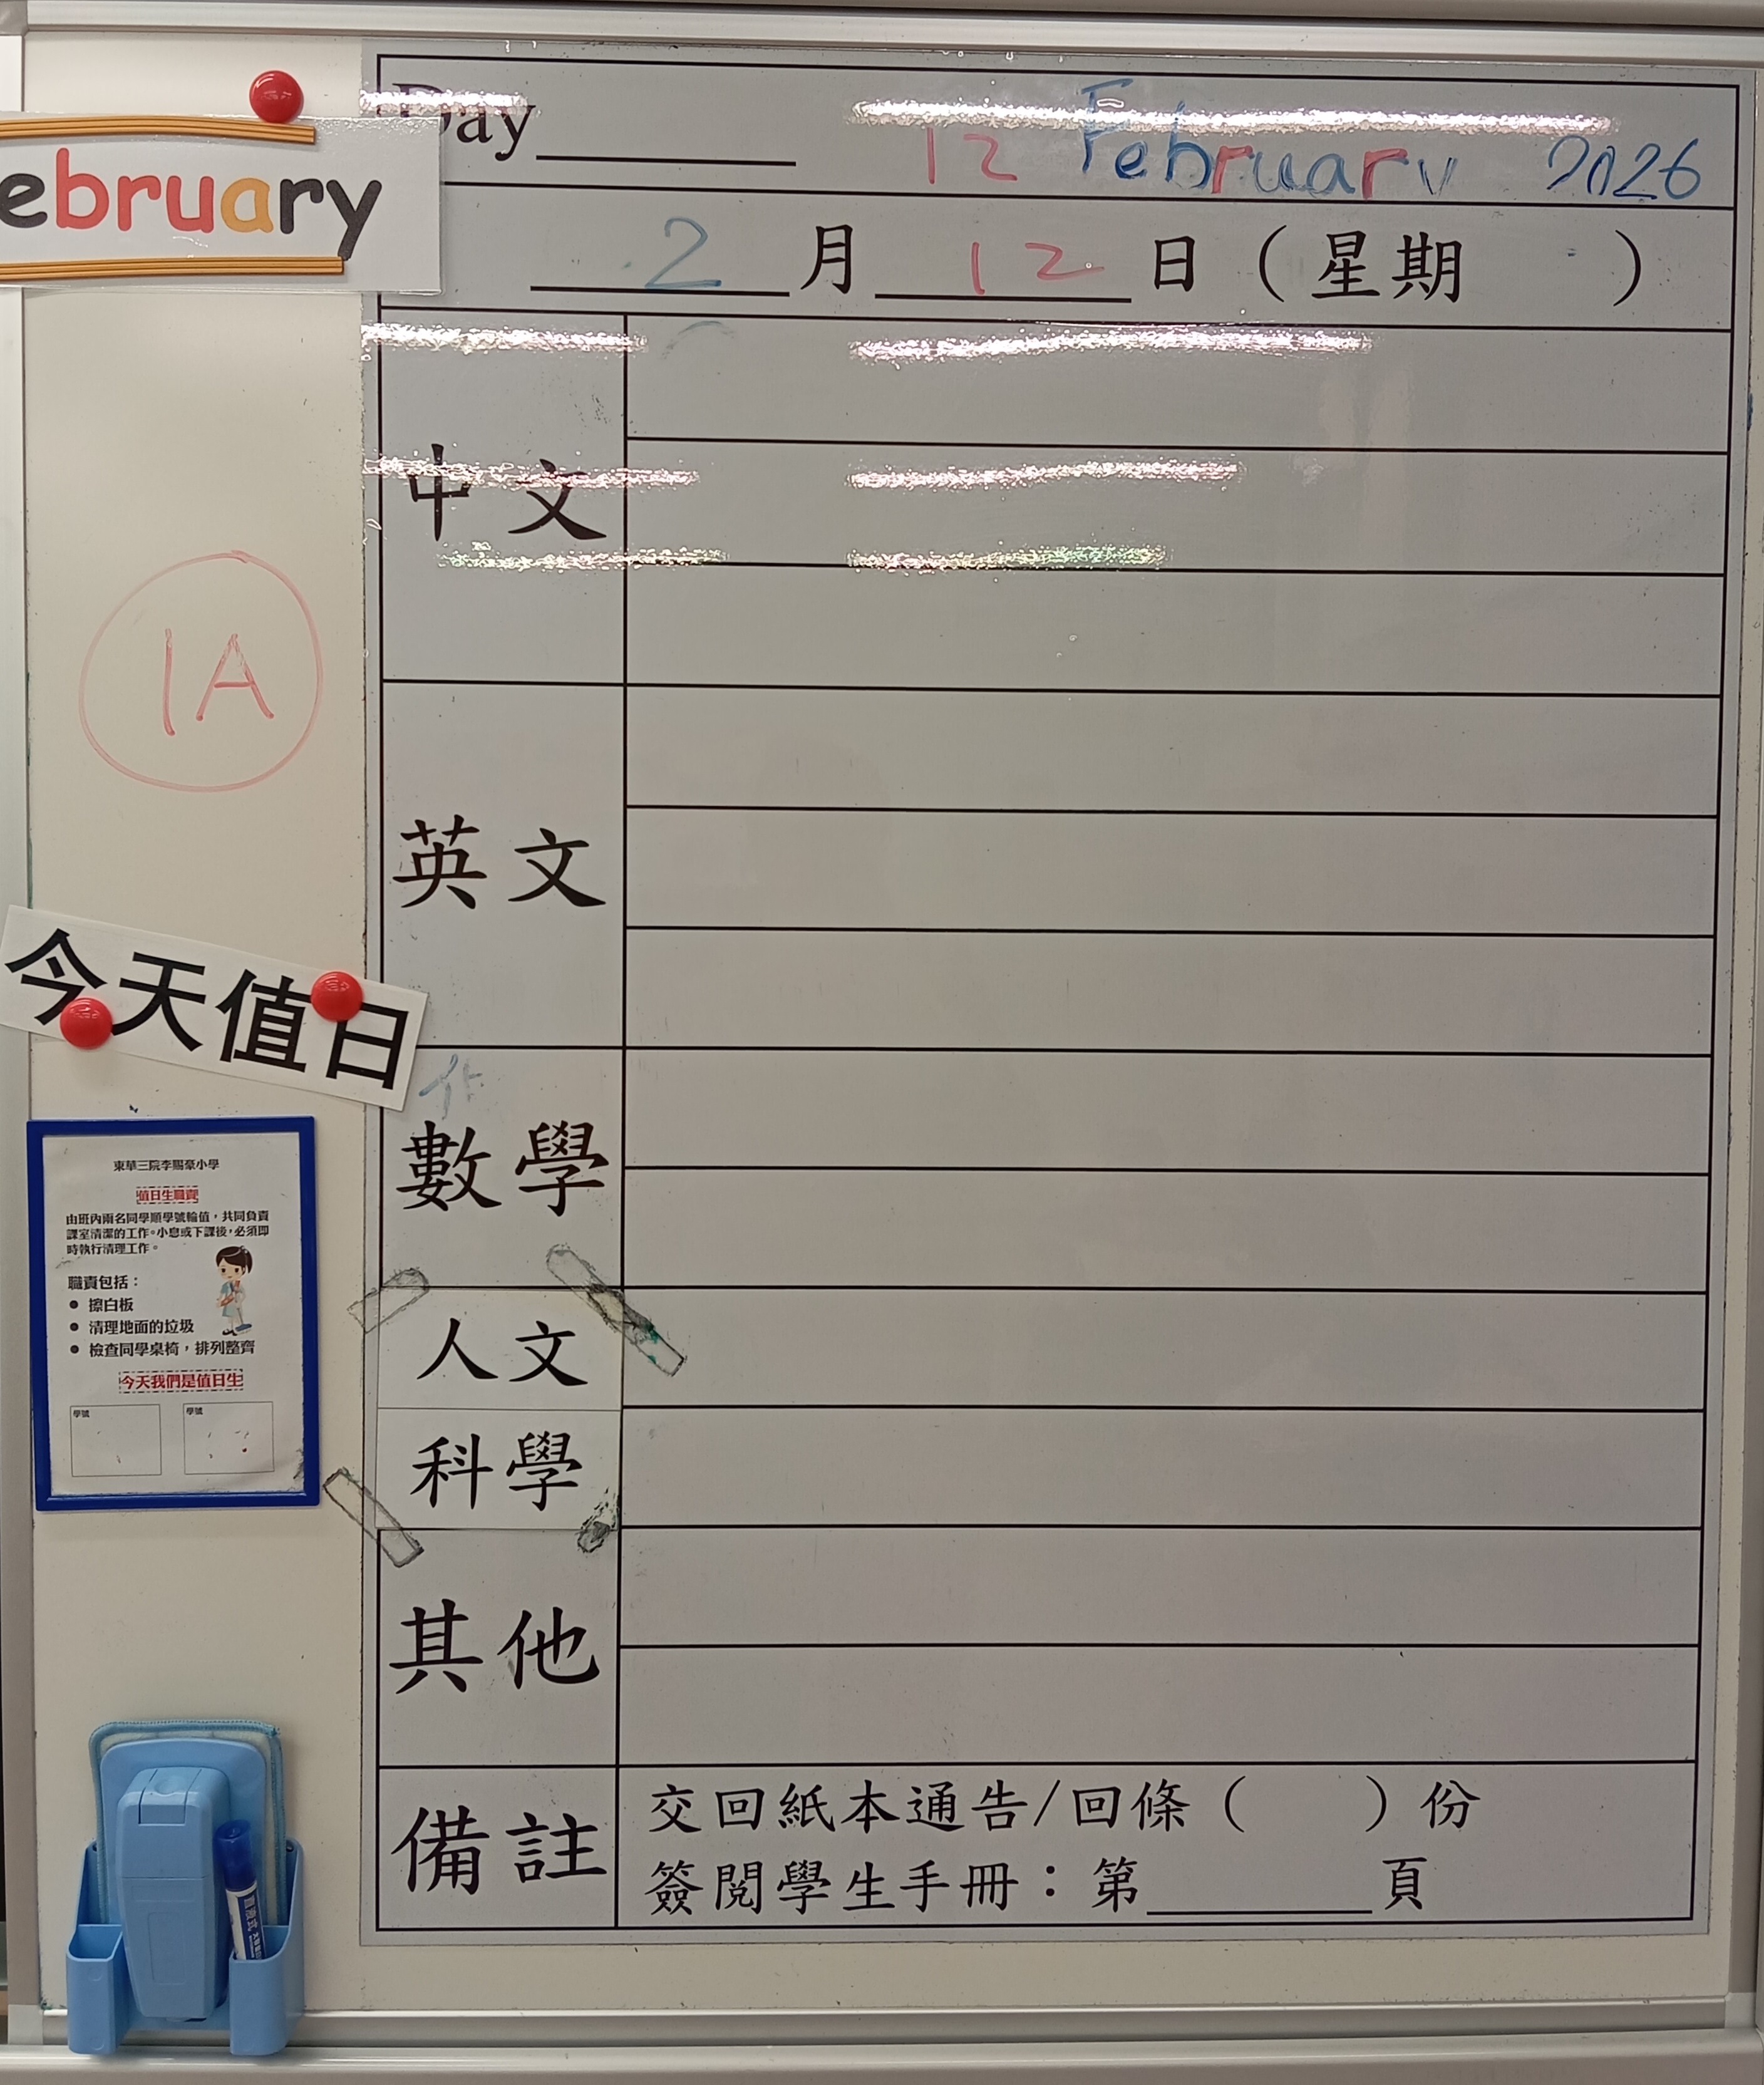 Day
12 February 2026
ebruary
2 月 12 日 (星期 )
中文
1A
英文
今天值日
數學
人文
科學
其他
備註
交回紙本通告/回條( )份
簽閱學生手冊：第 頁
東華三院李賜豪小學
值日生職責
由班內兩名同學順學號輪值，共同負責
課室清潔的工作。小息或下課後，必須即
時執行清理工作。
職責包括：
• 擦白板
• 清理地面的垃圾
• 檢查同學桌椅，排列整齊
今天我們是值日生
學號
學號